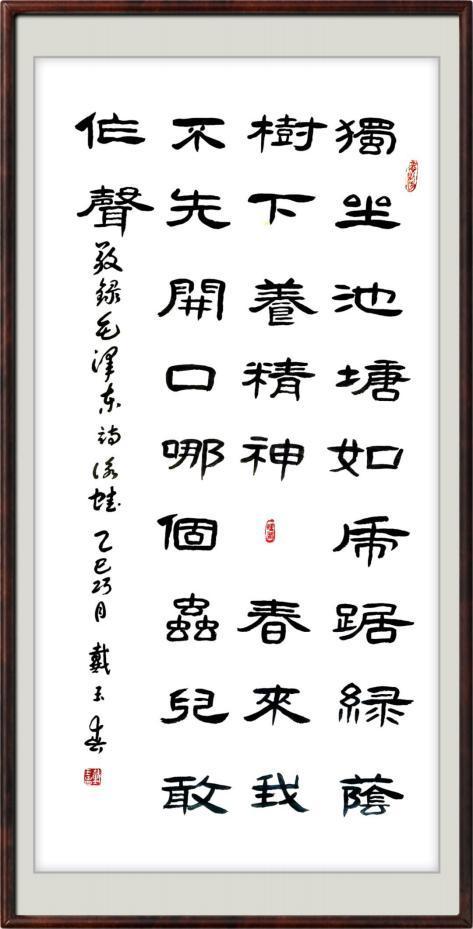 獨坐池塘如虎踞綠蔭
樹下養精神 春來我
不先開口哪個蟲兒敢
作聲 敬録毛澤东诗咏蛙 乙巳巧月 戴玉春